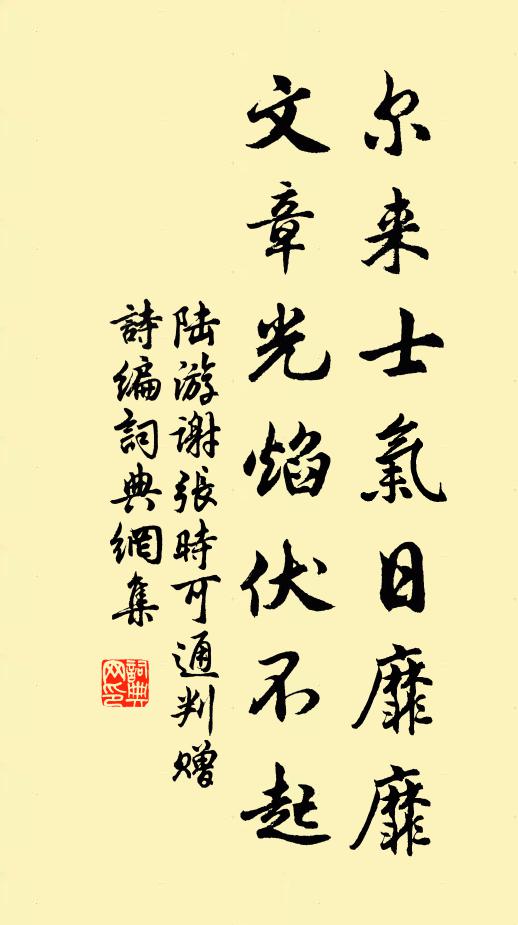 尔来士氣日靡靡
文章光焰伏不起
陆游谢張時可通判赠
詩编詞典網集
詞典网印